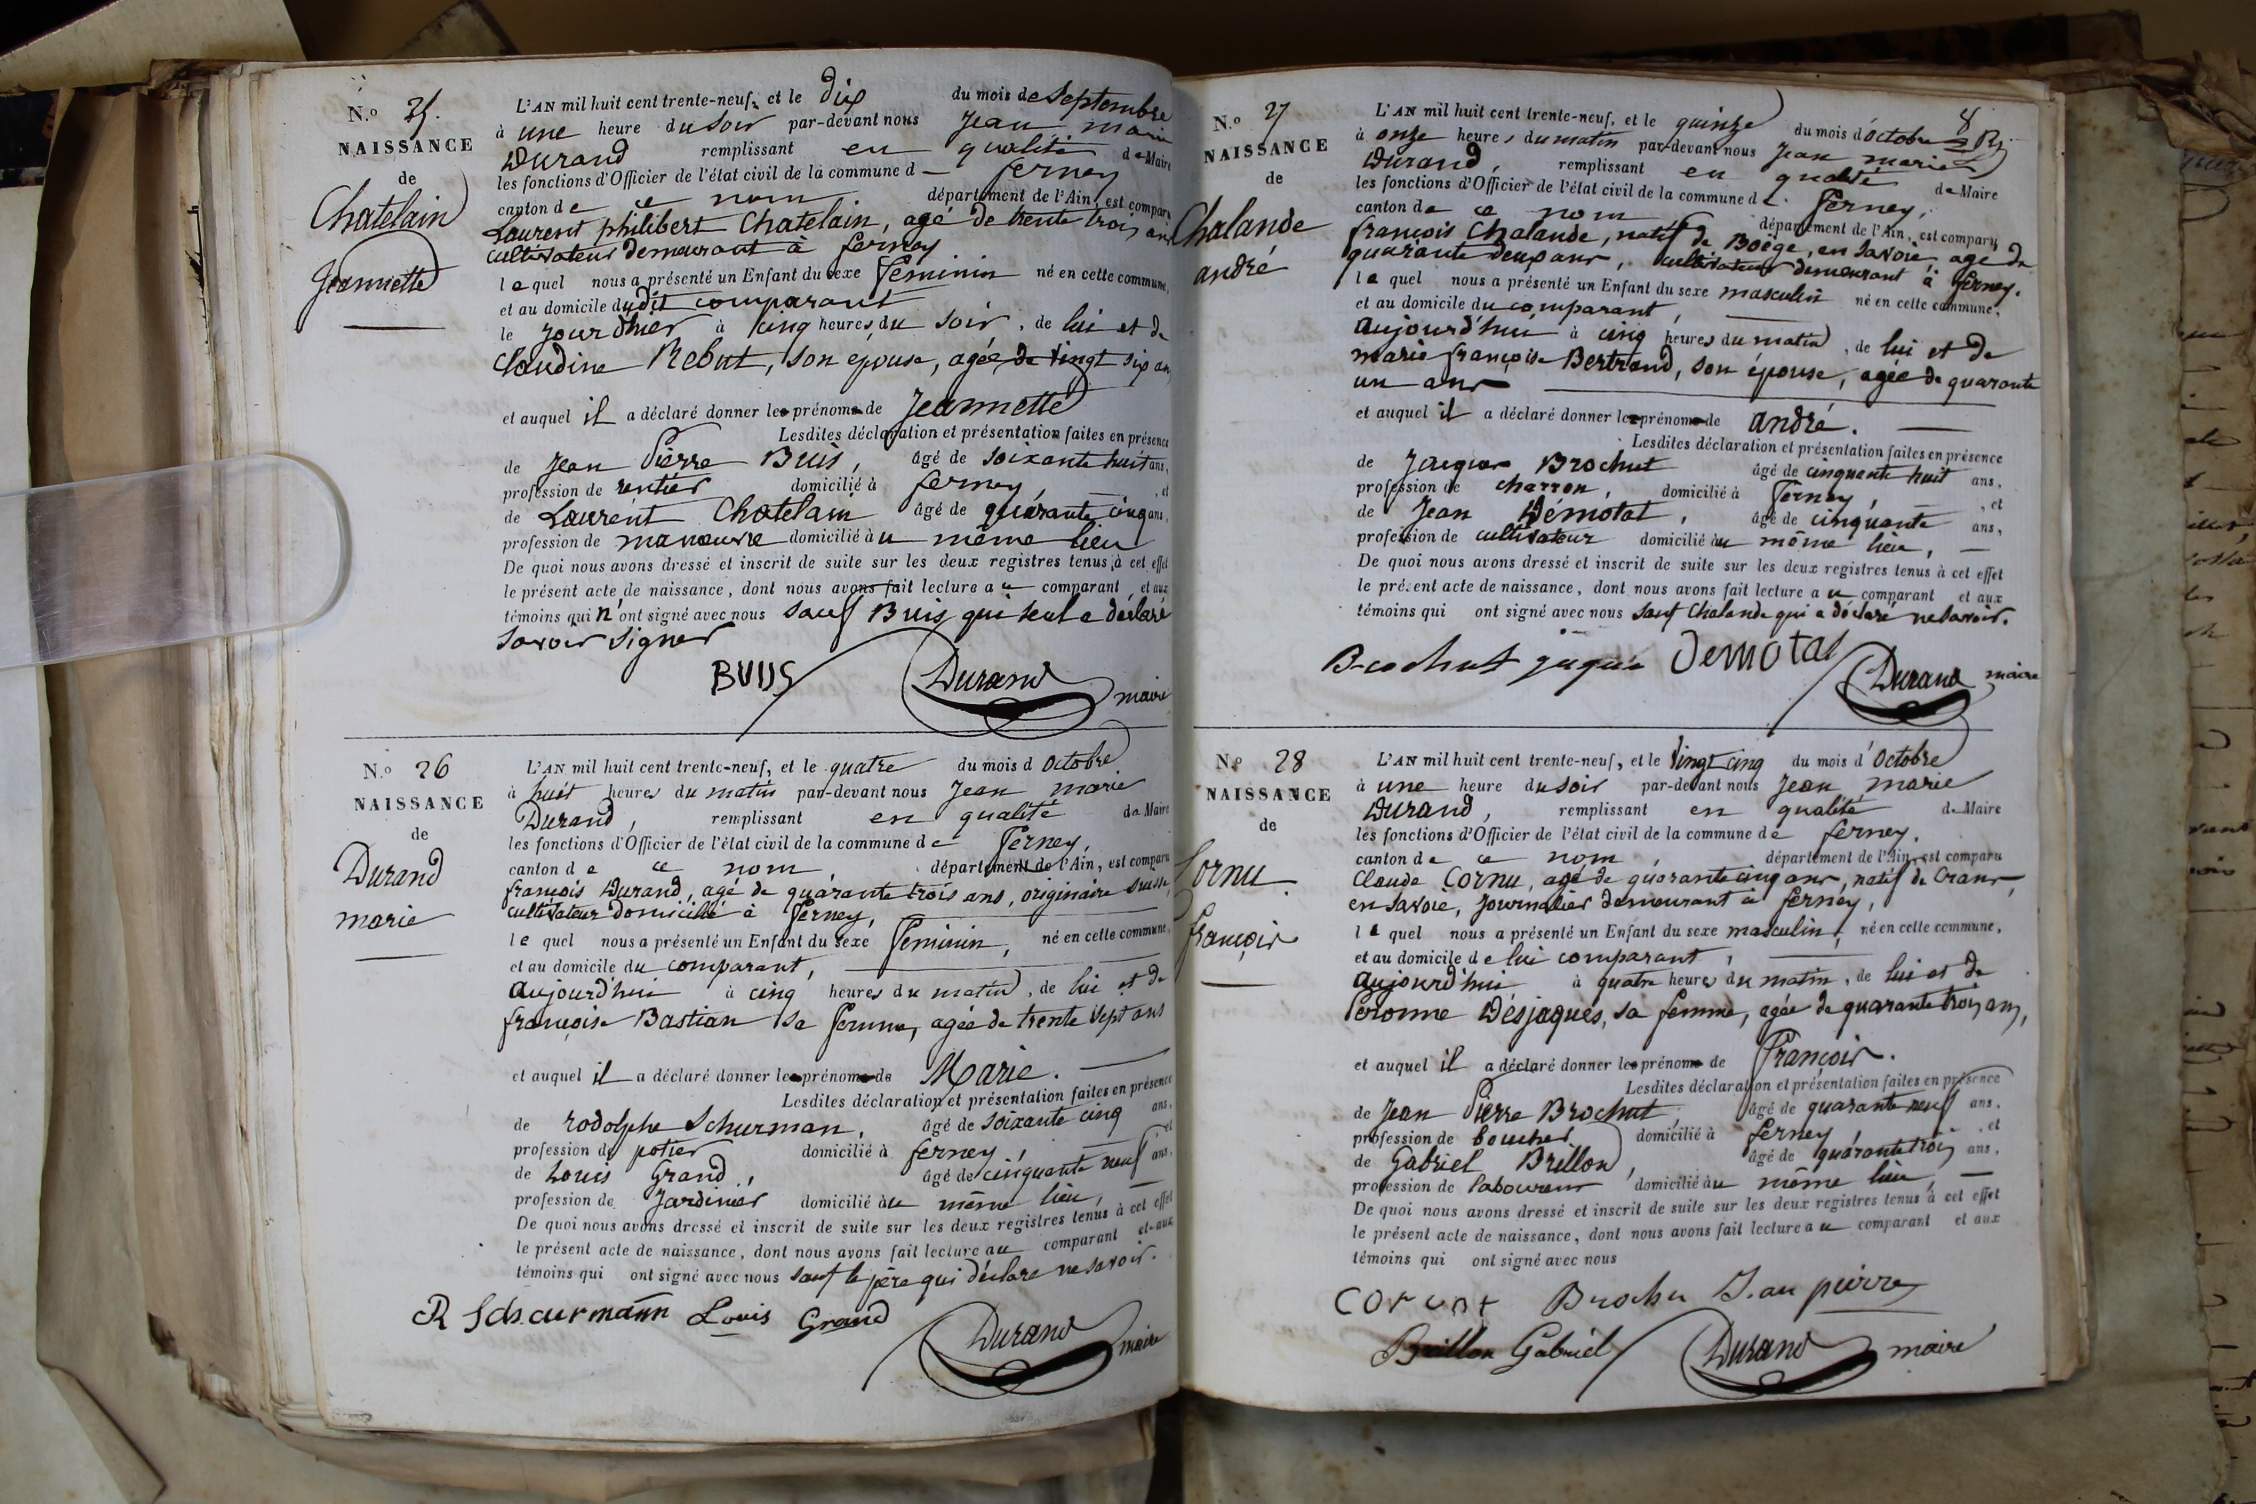 N.o 25.
NAISSANCE
de
Chatelain
Jeannette
L'AN mil huit cent trente-neuf, et le dix du mois de Septembre
à une heure du soir par-devant nous Jean marie
Durand remplissant en qualité de Maire
les fonctions d'Officier de l'état civil de la commune d ferney
canton de ce nom département de l'Ain, est comparu
Laurent philibert Chatelain, agé de trente trois ans
cultivateur demeurant à ferney
lequel nous a présenté un Enfant du sexe feminin né en cette commune,
et au domicile dudit comparant
le jour d'hier à cinq heures du soir, de lui et de
Claudine Rebut, son épouse, agée de vingt six ans
et auquel il a déclaré donner les prénoms de Jeannette
Lesdites déclaration et présentation faites en présence
de Jean Pierre Buis, âgé de soixante huit ans,
profession de rentier domicilié à ferney, et
de Laurent Chatelain âgé de quarante cinq ans,
profession de manoeuvre domicilié au même lieu
De quoi nous avons dressé et inscrit de suite sur les deux registres tenus à cet effet
le présent acte de naissance, dont nous avons fait lecture au comparant et aux
témoins qui n'ont signé avec nous sauf Buis qui seul a déclaré
savoir signer
BUIS Durand maire
N.o 26
NAISSANCE
de
Durand
marie
L'AN mil huit cent trente-neuf, et le quatre du mois d octobre
à huit heures du matin par-devant nous Jean marie
Durand, remplissant en qualité de Maire
les fonctions d'Officier de l'état civil de la commune de Ferney,
canton de ce nom département de l'Ain, est comparu
françois Durand, agé de quarante trois ans, originaire suisse,
cultivateur domicilié à Ferney,
lequel nous a présenté un Enfant du sexe feminin, né en cette commune,
et au domicile du comparant,
aujourd'hui à cinq heures du matin, de lui et de
françoise Bastian sa femme, agée de trente sept ans
et auquel il a déclaré donner les prénoms de Marie.
Lesdites déclaration et présentation faites en présence
de rodolphe Schurman, âgé de soixante cinq ans,
profession de potier domicilié à ferney, et
de Louis Grand, âgé de cinquante neuf ans,
profession de Jardinier domicilié au même lieu,
De quoi nous avons dressé et inscrit de suite sur les deux registres tenus à cet effet
le présent acte de naissance, dont nous avons fait lecture au comparant et aux
témoins qui ont signé avec nous sauf le père qui déclare ne savoir.
R Schcurmann Louis Grand Durand maire
8
N.o 27
NAISSANCE
de
Chalande
andré
L'AN mil huit cent trente-neuf, et le quinze du mois d'octobre
à onze heures du matin par-devant nous Jean marie
Durand, remplissant en qualité de Maire
les fonctions d'Officier de l'état civil de la commune de Ferney,
canton de ce nom département de l'Ain, est comparu
françois Chalande, natif de Boëge, en Savoie, agé de
quarante deux ans, cultivateur demeurant à ferney.
lequel nous a présenté un Enfant du sexe masculin né en cette commune,
et au domicile du comparant,
aujourd'hui à cinq heures du matin, de lui et de
marie françoise Bertrand, son épouse, agée de quarante
un ans
et auquel il a déclaré donner les prénoms de andré.
Lesdites déclaration et présentation faites en présence
de Jaques Brochut âgé de cinquante huit ans,
profession de charron, domicilié à Ferney, et
de Jean Démotat, âgé de cinquante ans,
profession de cultivateur domicilié au même lieu,
De quoi nous avons dressé et inscrit de suite sur les deux registres tenus à cet effet
le présent acte de naissance, dont nous avons fait lecture au comparant et aux
témoins qui ont signé avec nous sauf Chalande qui a déclaré ne savoir.
Brochut jaque Demotat Durand maire
N.o 28
NAISSANCE
de
Cornu
françois
L'AN mil huit cent trente-neuf, et le vingt cinq du mois d'octobre
à une heure du soir par-devant nous Jean marie
Durand, remplissant en qualité de Maire
les fonctions d'Officier de l'état civil de la commune de ferney.
canton de ce nom, département de l'Ain, est comparu
Claude Cornu, agé de quarante cinq ans, natif de Crans,
en Savoie, journalier demeurant à ferney,
lequel nous a présenté un Enfant du sexe masculin, né en cette commune,
et au domicile de lui comparant,
aujourd'hui à quatre heures du matin, de lui et de
Peronne Désjaques, sa femme, agée de quarante trois ans,
et auquel il a déclaré donner les prénoms de François.
Lesdites déclaration et présentation faites en présence
de Jean Pierre Brochut, âgé de quarante neuf ans,
profession de boucher domicilié à ferney, et
de Gabriel Brillon, âgé de quarante trois ans,
profession de laboureur domicilié au même lieu,
De quoi nous avons dressé et inscrit de suite sur les deux registres tenus à cet effet
le présent acte de naissance, dont nous avons fait lecture au comparant et aux
témoins qui ont signé avec nous
Corunt Brochu Jean pierre
Brillon Gabriel Durand maire